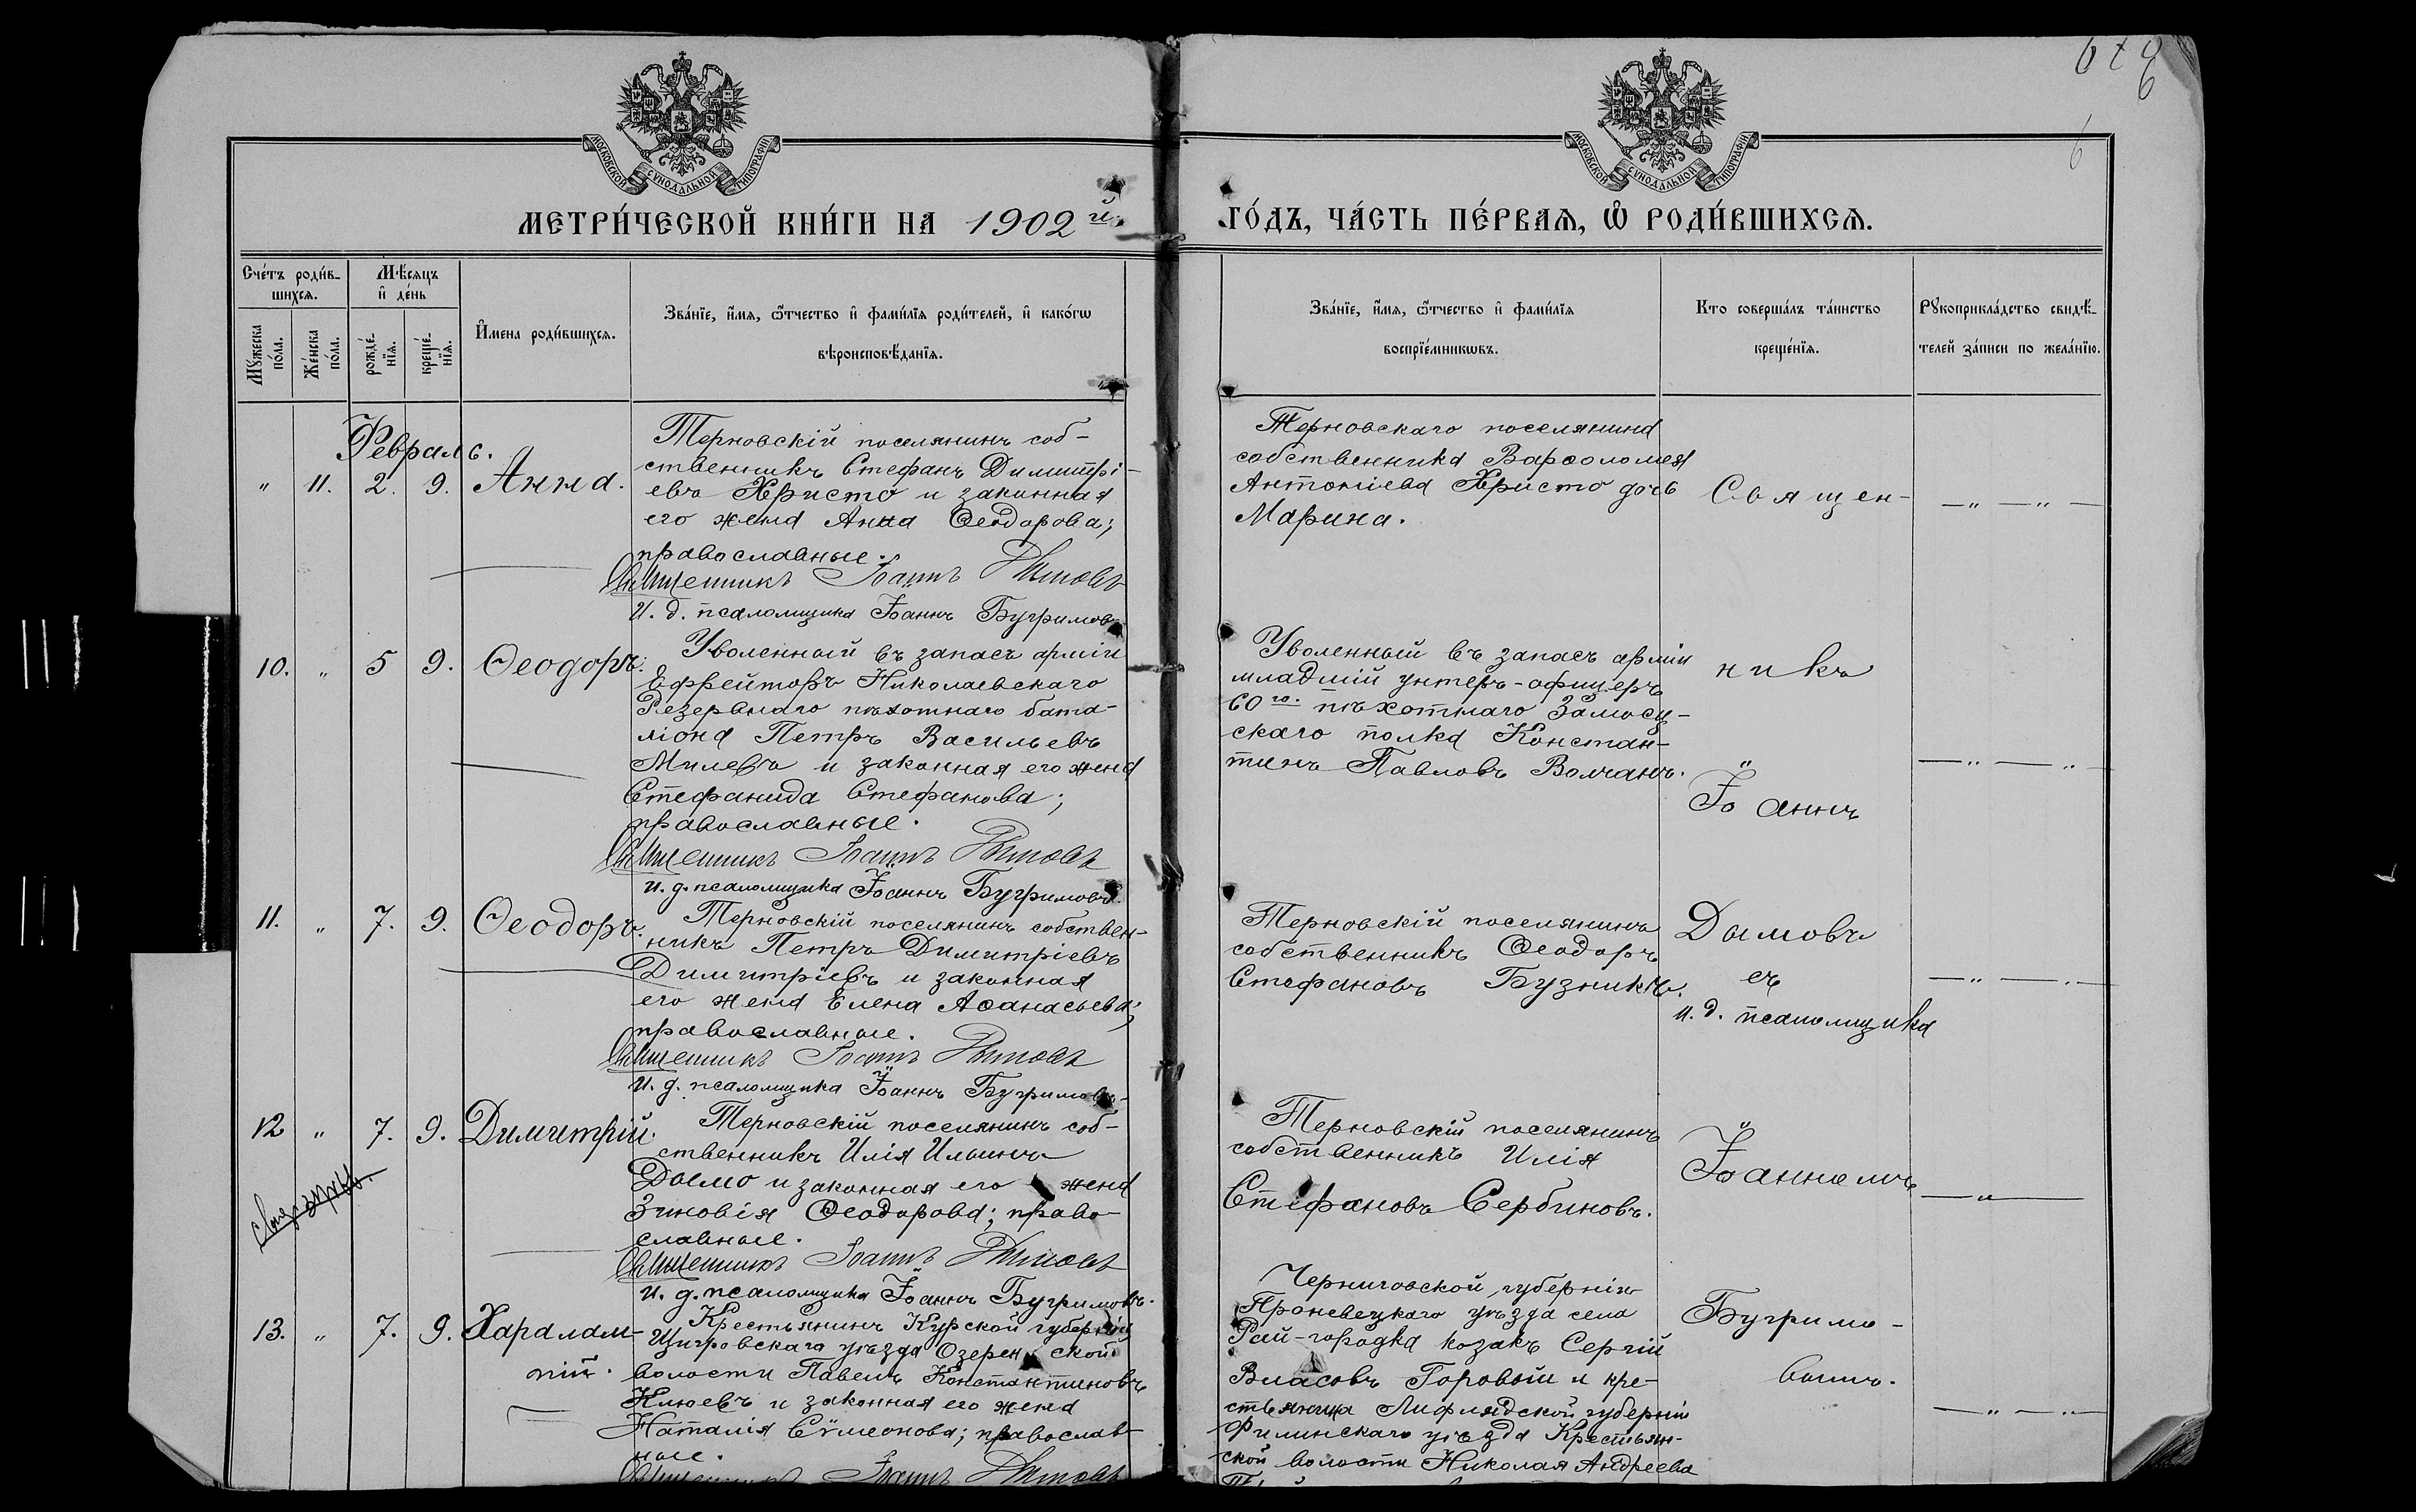 6
6
МОСКОВСКОЙ СѴНОДАЛЬНОЙ ТИПОГРАФІИ
МОСКОВСКОЙ СѴНОДАЛЬНОЙ ТИПОГРАФІИ
МЕТРИ́ЧЕСКОЙ КНИ́ГИ НА 1902й
ГО́ДЪ, ЧА́СТЬ ПЕ́РВАѦ, Ѽ РОДИ́ВШИХСѦ.
Сче́тъ роди́в-
шихсѧ.
Мѣ́сѧцъ
и҆ де́нь
Мꙋ́жеска
по́ла.
Же́нска
по́ла.
рожде́-
нїѧ.
креще́-
нїѧ.
И҆мена роди́вшихсѧ.
Зва́нїе, и҆́мѧ, ѻ҆́тчество и҆ фами́лїѧ роди́телей, и҆ како́гѡ
вѣроисповѣ́данїѧ.
Зва́нїе, и҆́мѧ, ѻ҆́тчество и҆ фами́лїѧ
воспрїе́мникѡвъ.
Кто соверша́лъ та́инство
креще́нїѧ.
Рꙋкоприкла́дство свидѣ́-
телей за́писи по жела́нїю.
Февраль.
" 11. 2. 9. Анна.
Терновскій поселянинъ соб-
ственникъ Стефанъ Димитрі-
евъ Христо и законная
его жена Анна Ѳеодорова;
православные.
Священникъ Іоаннъ Дымовъ
И. д. псаломщика Іоаннъ Бугримовъ
Терновскаго поселянина
собственника Варѳоломея
Антоніева Христо дочь
Марина.
Священ-
—„—„—
10. „ 5 9. Ѳеодоръ.
Уволенный въ запасъ арміи
Ефрейторъ Николаевскаго
Резервнаго пѣхотнаго бата-
ліона Петръ Васильевъ
Милевъ и законная его жена
Стефанида Стефанова;
православные.
Священникъ Іоаннъ Дымовъ
и. д. псаломщика Іоаннъ Бугримовъ.
Уволенный въ запасъ арміи
младшій унтеръ-офицеръ
60го. пѣхотнаго Замосц-
скаго полка Констан-
тинъ Павловъ Волчанъ.
никъ
Іоаннъ
—„—„
11. „ 7. 9. Ѳеодоръ.
Терновскій поселянинъ собствен-
никъ Петръ Димитріевъ
Димитріевъ и законная
его жена Елена Аѳанасьева;
православные.
Священникъ Іоаннъ Дымовъ
И. д. псаломщика Іоаннъ Бугримовъ.
Терновскій поселянинъ
собственникъ Ѳеодоръ
Стефановъ Бузникъ.
Дымовъ
съ
и. д. псаломщика
—„—„—
12 „ 7. 9. Димитрій.
Терновскій поселянинъ соб-
ственникъ Илія Ильинъ
Дымо и законная его жена
Зиновія Ѳеодорова; право-
славные.
Священникъ Іоаннъ Дымовъ
и. д. псаломщика Іоаннъ Бугримовъ.
Терновскій поселянинъ
собственникъ Илія
Стефановъ Сербиновъ.
Іоанномъ
—„—
13. „ 7. 9. Харалам-
пій.
Крестьянинъ Курской губерніи
Щигровскаго уѣзда Озеренской
волости Павелъ Константиновъ
Клюевъ и законная его жена
Наталія Сѵмеонова; православ-
ные.
Священникъ Іоаннъ Дымовъ
Черниговской губерніи
уѣзда села
Рай-городка козакъ Сергій
Власовъ Горовый и кре-
стьянина Лифляндской губерніи
уѣзда Крестьян-
ской волости Николая Андреева
Бугримо-
вымъ.
—„—„—